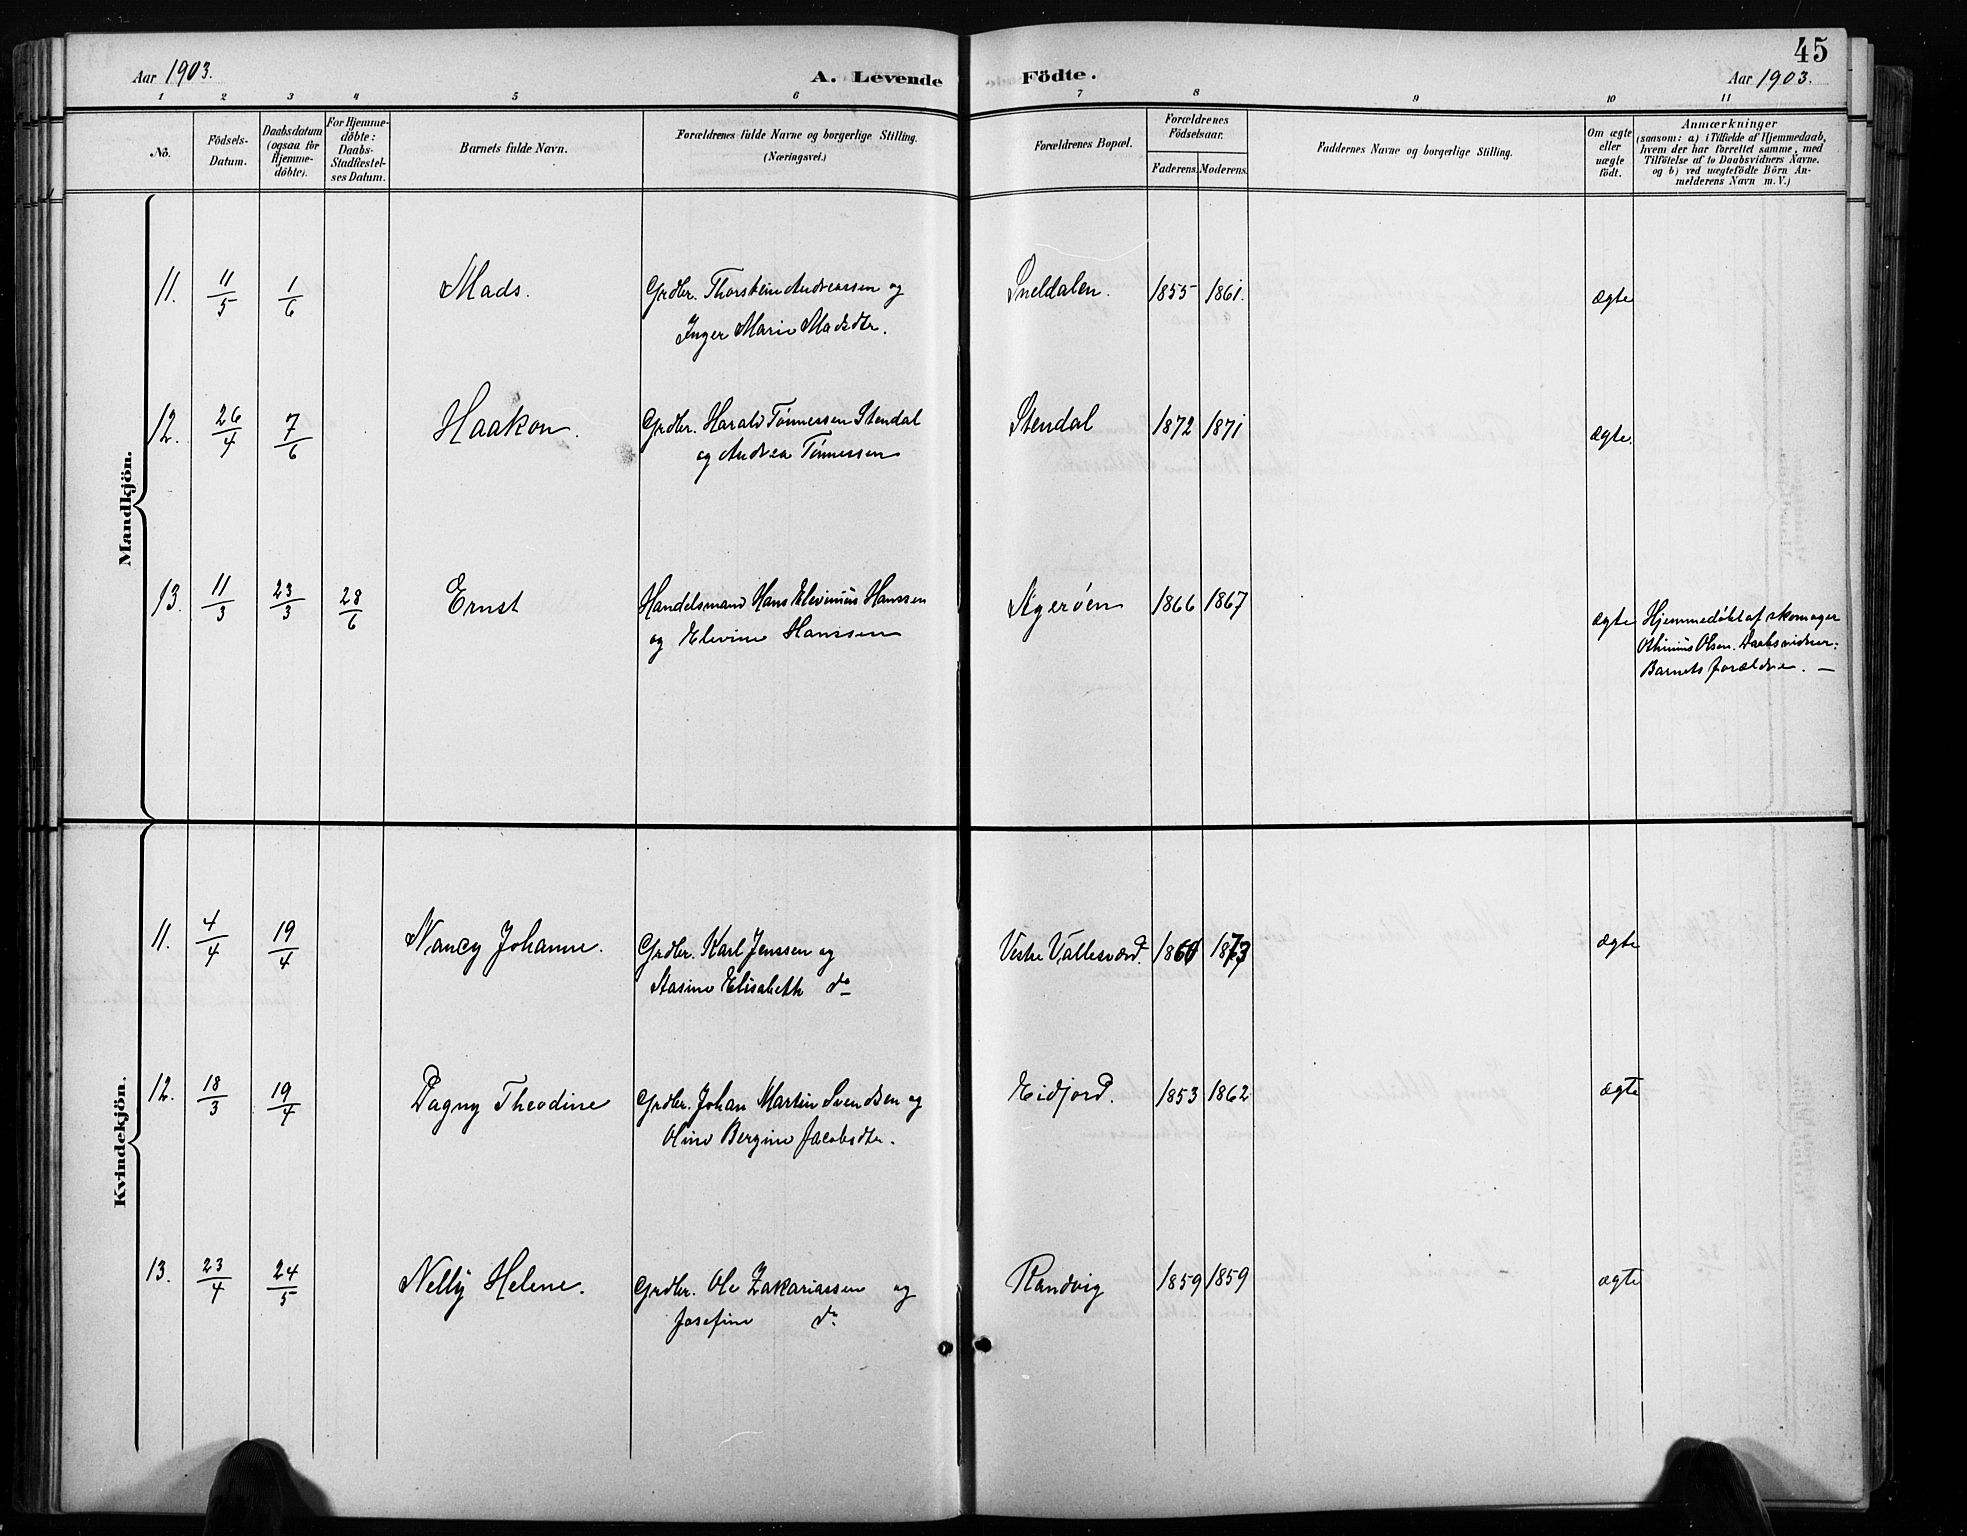 45
Aar 1903.
A. Levende Födte.
Aar 1903.
1 2 3 4 5 6 7 8 9 10 11
No.
Födsels-
Datum.
Daabsdatum
(ogsaa for
Hjemme-
døbte).
For Hjemme-
döbte:
Daabs-
Stadfæstel-
ses Datum.
Barnets fulde Navn.
Forældrenes fulde Navne og borgerlige Stilling.
(Næringsvei.)
Forældrenes Bopæl.
Forældrenes
Födselsaar.
Faderens. Moderens.
Faddernes Navne og borgerlige Stilling.
Om ægte
eller
uægte
födt.
Anmærkninger
(saasom: a) i Tilfælde af Hjemmedaab,
hvem der har forrettet samme, med
Tilföielse af to Daabsvidners Navne.
og b) ved uægtefödte Börn An-
melderens Navn m. V.)
Mandkjön.
11. 11/5 1/6 Mads. Grdbr. Thorstein Andreassen og Sneldalen. 1855 1861. ægte
Inger Marie Madsdtr.
12. 26/4 7/6 Haakon. Grdbr. Harald Tønnessen Stendal Stendal 1872 1871 ægte.
og Andrea Tønnessen
13. 11/3 23/3 28/6 Ernst Handelsmand Hans Elevinius Hanssen Agerøen 1866 1867 ægte Hjemmedøbt af skomager
og Elevine Hanssen Olsen. Daabsvidner:
Barnets forældre. —
Kvindekjön.
11. 4/4 19/4 Nancy Johanne. Grdbr. Karl Jenssen og Vestre Vallesværd. 1864 1873 ægte
Aasine Elisabeth do
12. 18/3 19/4 Dagny Theodine Grdbr. Johan Martin Svendsen og Eidjord. 1853 1862 ægte
Oline Bergine Jacobsdtr.
13. 23/4 24/5 Nelly Helene. Grdbr. Ole Zakariassen og Randvig 1859 1859 ægte
Josefine do